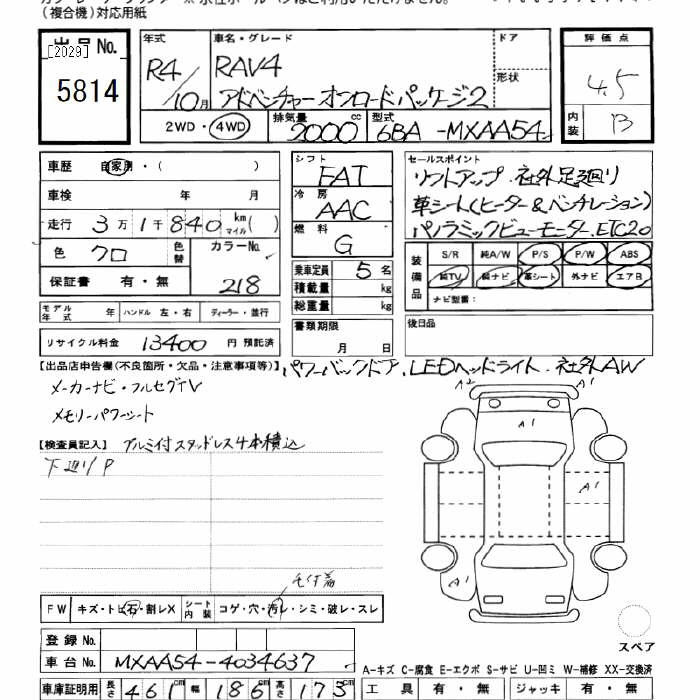 (複合機)対応用紙
出品No.
[2029]
5814
年式 R4/10月
車名・グレード RAV4
アドベンチャーオンロードパッケージ2
ドア
形状
評価点 4.5
内装 B
2WD・4WD
排気量 2000 cc
型式 6BA-MXAA54
車歴 自家用・( )
車検 年 月
走行 3万1千840 km マイル( )
色 クロ 色替 カラーNo. 218
保証書 有・無
シフト FAT
冷房 AAC
燃料 G
乗車定員 5名
積載量 kg
総重量 kg
セールスポイント
リフトアップ.社外足廻り
革シート(ヒーター&ベンチレーション)
パノラミックビューモニター.ETC2.0
装備品 S/R 純A/W P/S P/W ABS
純TV 純ナビ 革シート 外ナビ エアB
ナビ型番:
モデル年式 年 ハンドル 左・右 ディーラー・並行
書類期限 月 日
後日品
リサイクル料金 13400 円 預託済
【出品店申告欄(不良箇所・欠品・注意事項等)】 パワーバックドア.LEDヘッドライト.社外AW
メーカーナビ・フルセグTV
メモリーパワーシート
【検査員記入】 アルミ付スタッドレス4本積込
下廻りP
A2 A1
A1
A1
A1
FW キズ・トビ石・割レX シート内装 コゲ・穴・汚レ・シミ・破レ・スレ
スペア
登録No.
車台No. MXAA54-4034637
A-キズ C-腐食 E-エクボ S-サビ U-凹ミ W-補修 XX-交換済
車庫証明用 長さ 461cm 幅 186cm 高さ 173cm
工具 有・無 ジャッキ 有・無